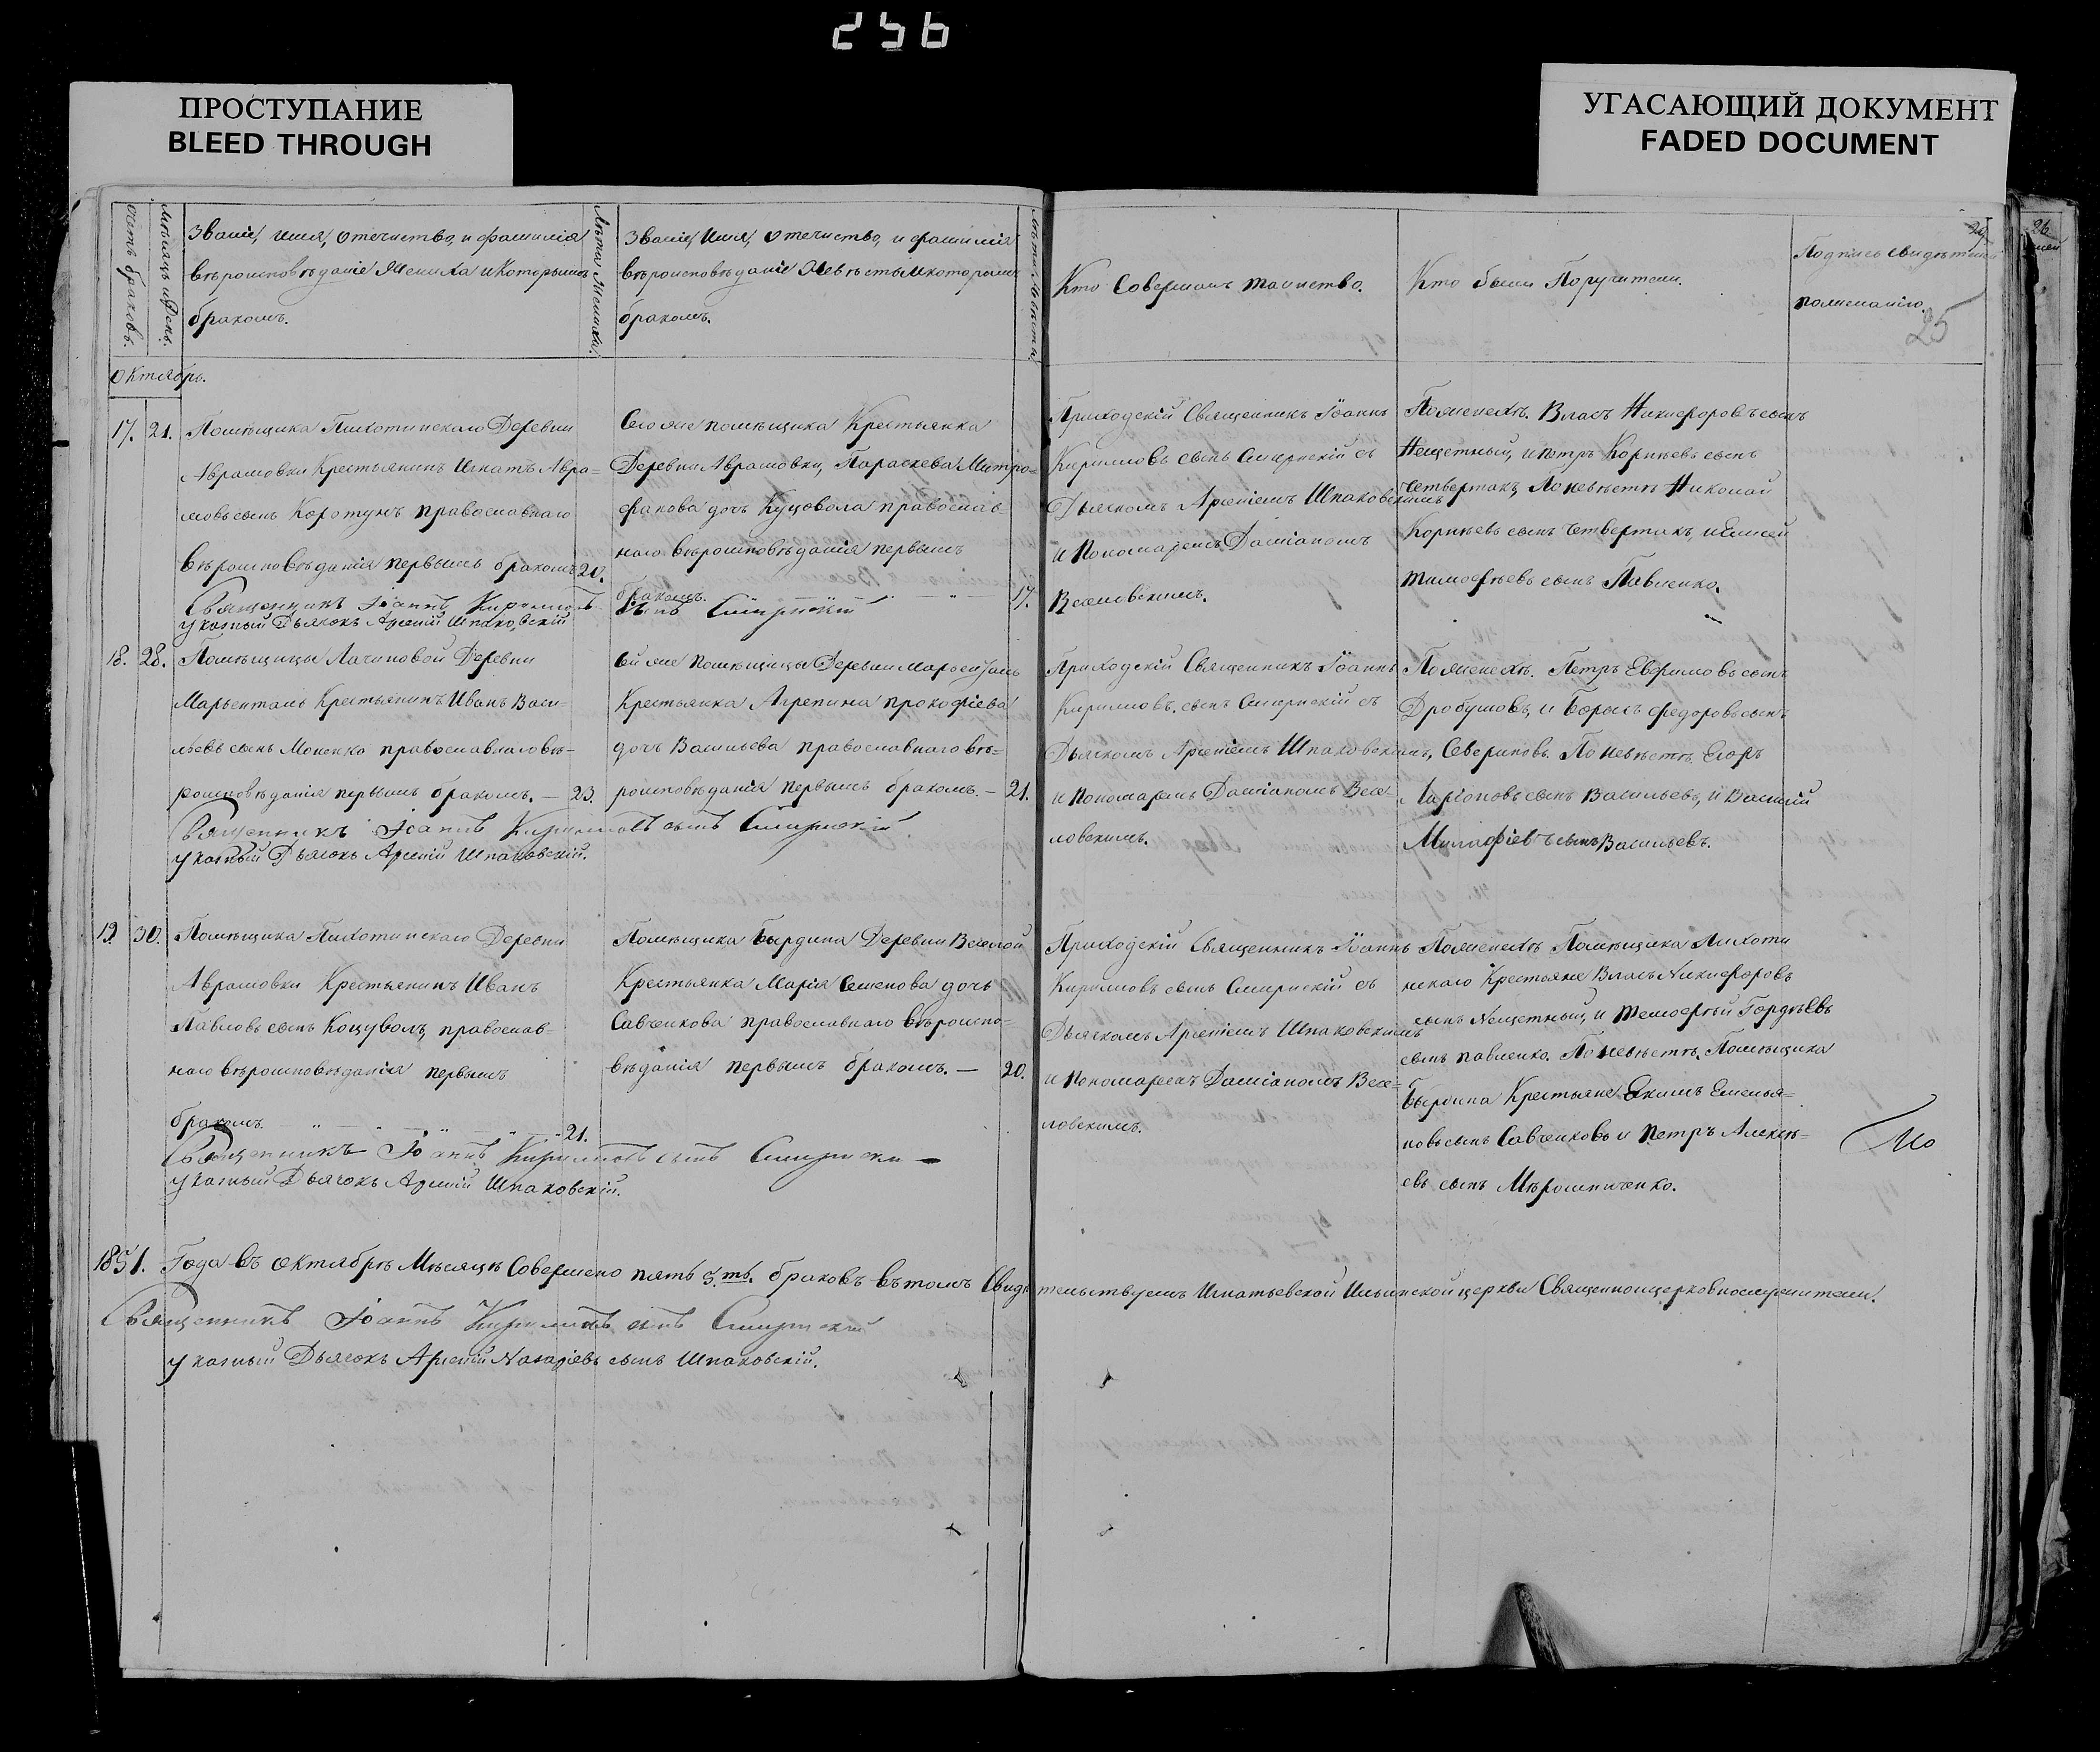 256
ПРОСТУПАНИЕ
BLEED THROUGH
УГАСАЮЩИЙ ДОКУМЕНТ
FADED DOCUMENT
счетъ браковъ.
Мѣсяцъ и День.
Званіе, имя, отечество, и фамилія
вѣроисповѣданіе Жениха и Которымъ
бракомъ.
Лѣта Жениха.
Званіе, Имя, отечество, и фамилія
вѣроисповѣданіе Невѣсты и которымъ
бракомъ.
Лѣта Невѣсты
Кто Совершалъ таинство.
Кто были Поручители.
Подпись свидѣтелей
пожеланію.
25
26
Октябрь.
17. 21.
Помѣщика Пихотинскаго Деревни
Аврамовки Крестьянинъ Игнатъ Авра=
мовъ сынъ Коротунъ православнаго
вѣроисповѣданія первымъ бракомъ 20.
Его же помѣщика Крестьянка
Деревни Аврамовки, Параскева Митро=
фанова дочь Куцовола православ=
наго вѣроисповѣданія первымъ
бракомъ. 17.
Приходскій Священникъ Іоаннъ
Кириловъ сынъ Смирнскій съ
Дьячкомъ Арсеніемъ Шпаковскимъ
и Пономаремъ Даміаномъ
Веселовскимъ.
Поженихѣ. Власъ Никифоровъ сынъ
Нещетный, и Петръ Корнѣевъ сынъ
Четвертакъ, Поневѣстѣ Николай
Корнѣевъ сынъ Четвертакъ, и Елисей
Тимофѣевъ сынъ Павленко.
Священникъ Іоаннъ Кириловъ сынъ Смирнскій
Указный Дьячокъ Арсеній Шпаковскій
18. 28.
Помѣщицы Лачиновой Деревни
Марьенталь Крестьянинъ Иванъ Васи=
льевъ сынъ Моненко православнаго вѣ=
роисповѣданія первымъ бракомъ. — 23.
Ей же помѣщицы Деревни Марьенталь
Крестьянка Агрепина Прокофіева
дочь Васильева православнаго вѣ=
роисповѣданія первымъ бракомъ. — 21.
Приходскій Священникъ Іоаннъ
Кириловъ сынъ Смирнскій съ
Дьячкомъ Арсеніемъ Шпаковскимъ,
и Пономаремъ Даміаномъ Весе=
ловскимъ.
Поженихѣ. Петръ Евфимовъ сынъ
Дробушовъ, и Борысъ Федоровъ сынъ
Севериновъ. Поневѣстѣ, Егоръ
Ларіоновъ сынъ Васильевъ, и Василій
сынъ Васильевъ.
Священникъ Іоаннъ Кириловъ сынъ Смирнскій
Указный Дьячокъ Арсеній Шпаковскій.
19. 30.
Помѣщика Пихотинскаго Деревни
Аврамовки Крестьянинъ Иванъ
Павловъ сынъ Коцуволъ, православ=
наго вѣроисповѣданія первымъ
бракомъ. 21.
Помѣщика Бырдина Деревни Веселой
Крестьянка Марія Семенова дочь
Савченкова православнаго вѣроиспо=
вѣданія первымъ бракомъ. — 20.
Приходскій Священникъ Іоаннъ
Кириловъ сынъ Смирнскій съ
Дьячкомъ Арсеніемъ Шпаковскимъ
и Пономаремъ Даміаномъ Весе=
ловскимъ.
Поженихѣ Помѣщика Пихоти
нскаго Крестьяне Власъ Никифоровъ
сынъ Нещетный, и Темофѣй Гордѣевъ
сынъ Павленко. Поневѣстѣ, Помѣщика
Бырдина Крестьяне Екимъ Емелья=
новъ сынъ Савченковъ и Петръ Алексѣ=
евъ сынъ Мѣрошниченко.
Священникъ Іоаннъ Кириловъ сынъ Смирнскій
Указный Дьячокъ Арсеній Шпаковскій.
1851. Года въ Октябрѣ Мѣсяцѣ Совершено пять 5.ть. браковъ въ томъ Свидѣтельствуемъ Игнатьевской Ильинской церкви Священноцерковнослужители.
Священникъ Іоаннъ Кириловъ сынъ Смирнскій
Указный Дьячокъ Арсеній Назаріевъ сынъ Шпаковскій.